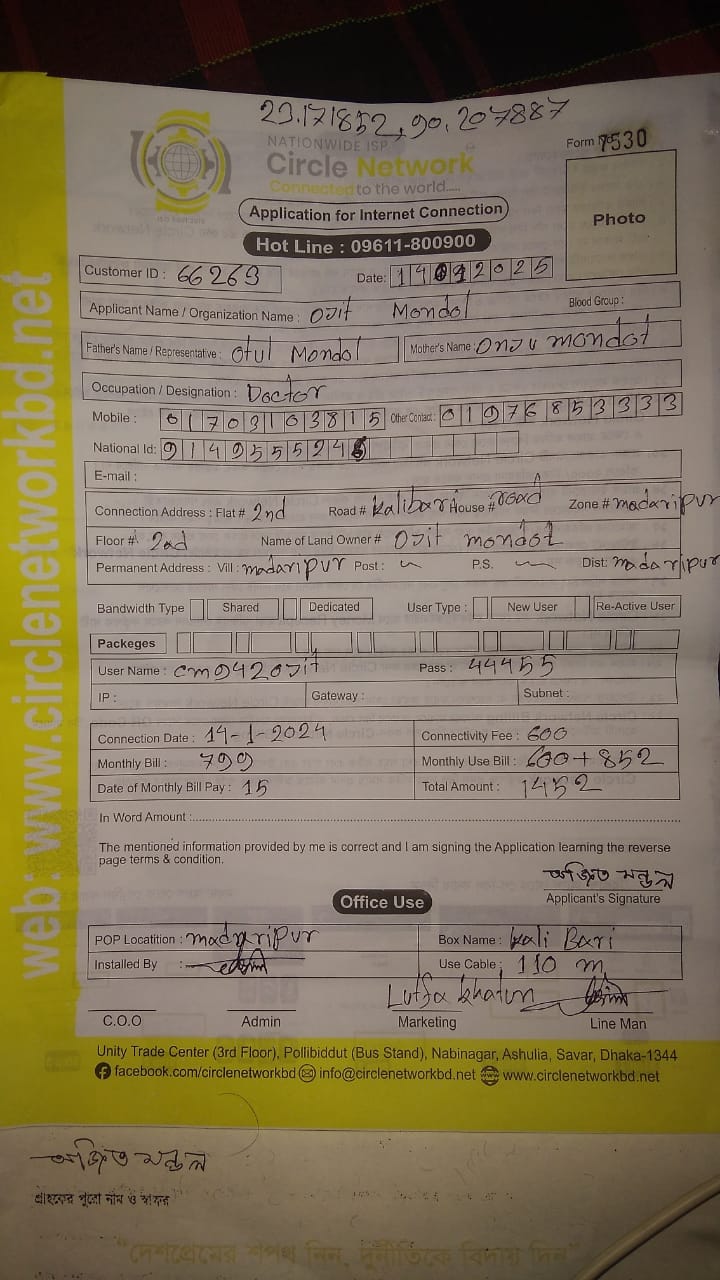 23.171852, 90.207887
NATIONWIDE ISP
Circle Network
Connected to the world.....
Form No 7530
Photo
Application for Internet Connection
Hot Line : 09611-800900
Customer ID : 66269
Date: 14 2025
Applicant Name / Organization Name : Ojit Mondol Blood Group :
Father's Name / Representative : Otul Mondol Mother's Name : mondol
Occupation / Designation : Doctor
Mobile : 01703103815 Other Contact : 01976853333
National Id: 914955524
E-mail :
Connection Address : Flat # 2nd Road # kalibari House # road Zone # madaripur
Floor # 2nd Name of Land Owner # Ojit mondol
Permanent Address : Vill : madaripur Post : P.S. Dist: madaripur
Bandwidth Type Shared Dedicated User Type : New User Re-Active User
Packeges
User Name : cm0942ojit Pass : 44455
IP : Gateway : Subnet :
Connection Date : 14-1-2024 Connectivity Fee : 600
Monthly Bill : 799 Monthly Use Bill : 600+852
Date of Monthly Bill Pay : 15 Total Amount : 1452
In Word Amount :
The mentioned information provided by me is correct and I am signing the Application learning the reverse
page terms & condition.
অজিত মন্ডল
Applicant's Signature
Office Use
POP Locatition : madaripur Box Name : kali Bari
Installed By : Use Cable : 110 m
Lutfa khatun
C.O.O Admin Marketing Line Man
Unity Trade Center (3rd Floor), Pollibiddut (Bus Stand), Nabinagar, Ashulia, Savar, Dhaka-1344
facebook.com/circlenetworkbd info@circlenetworkbd.net www.circlenetworkbd.net
web: www.circlenetworkbd.net
অজিত মন্ডল
গ্রাহকের পুরো নাম ও স্বাক্ষর
"দেশপ্রেমের শপথ নিন, দুর্নীতিকে বিদায় দিন"